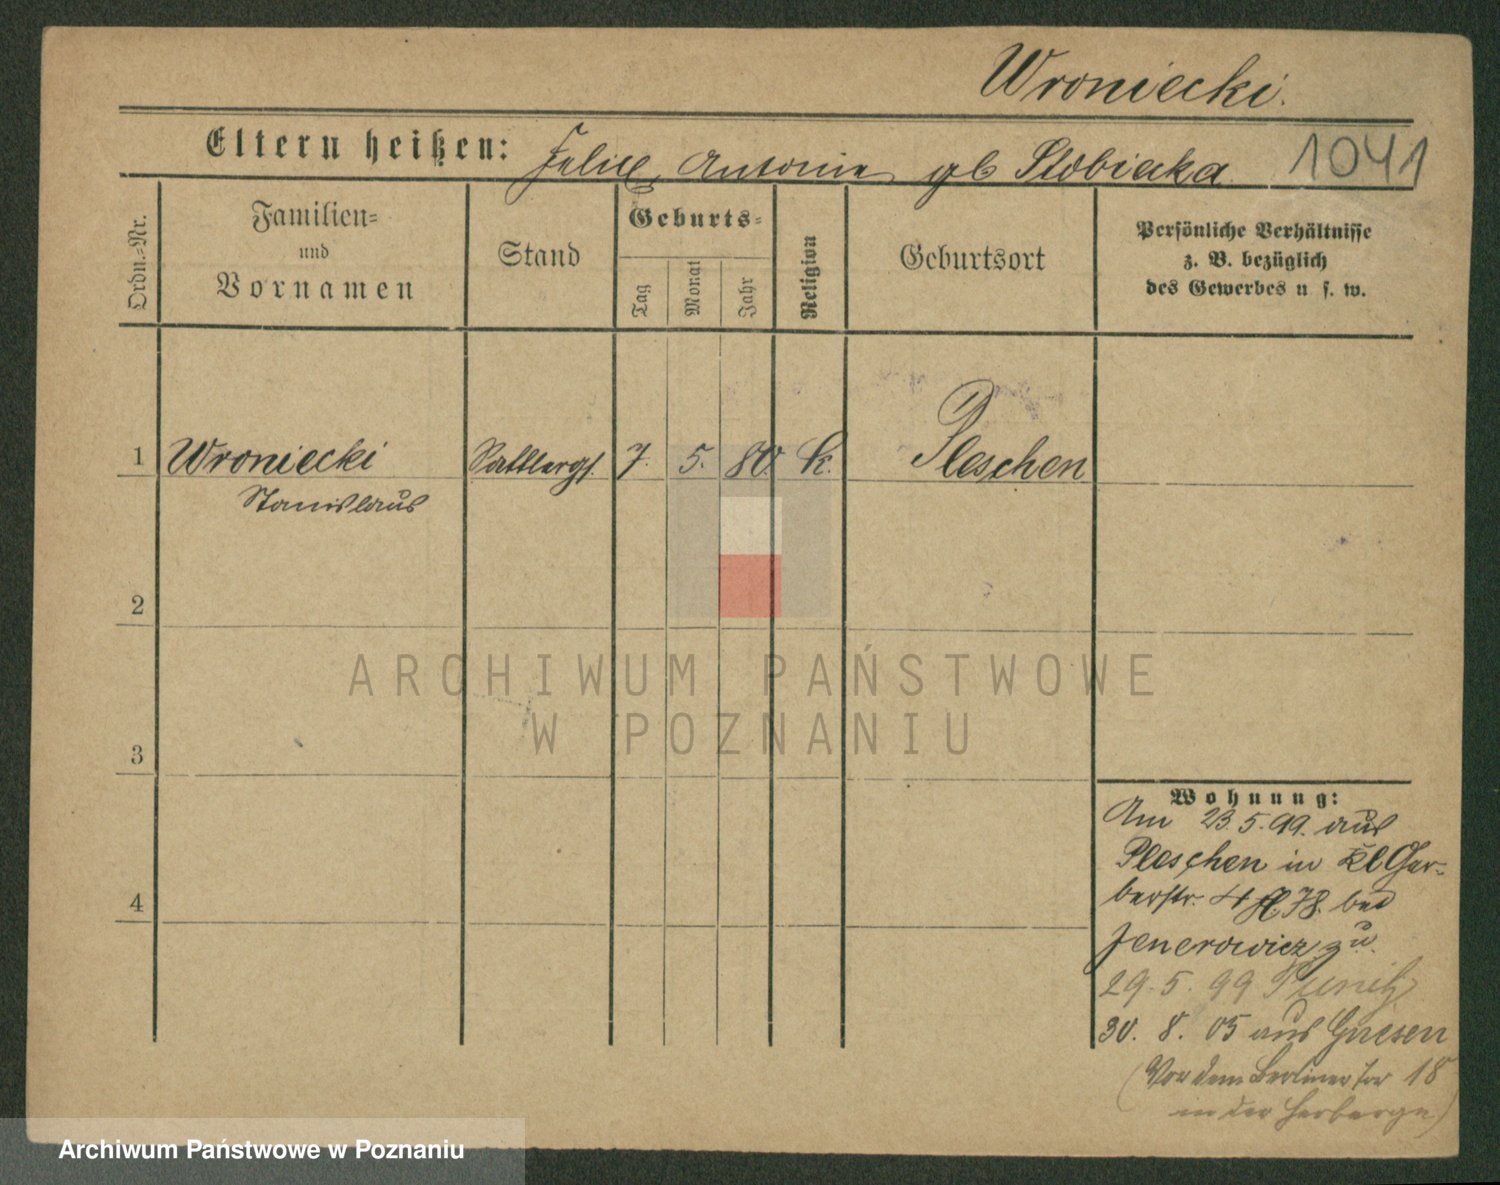 Wroniecki.
Eltern heißen: Felix, Antonie gb Stobiecka
1041
Ordn.-Nr.
Familien-
und
Vornamen
Stand
Geburts-
Tag
Monat
Jahr
Religion
Geburtsort
Persönliche Verhältnisse
z. B. bezüglich
des Gewerbes u s. w.
1 Wroniecki Sattlergs. 7. 5. 80. k. Pleschen
Stanislaus
2
3
4
ARCHIWUM PAŃSTWOWE
W POZNANIU
Wohnung:
Am 23.5.99. aus
Pleschen in Kl Ger-
berstr. 4 bei
zu.
29.5.99 Punitz
30. 8. 05 aus Gnesen
(Vor dem Berliner tor 18
in der Herberge)
Archiwum Państwowe w Poznaniu